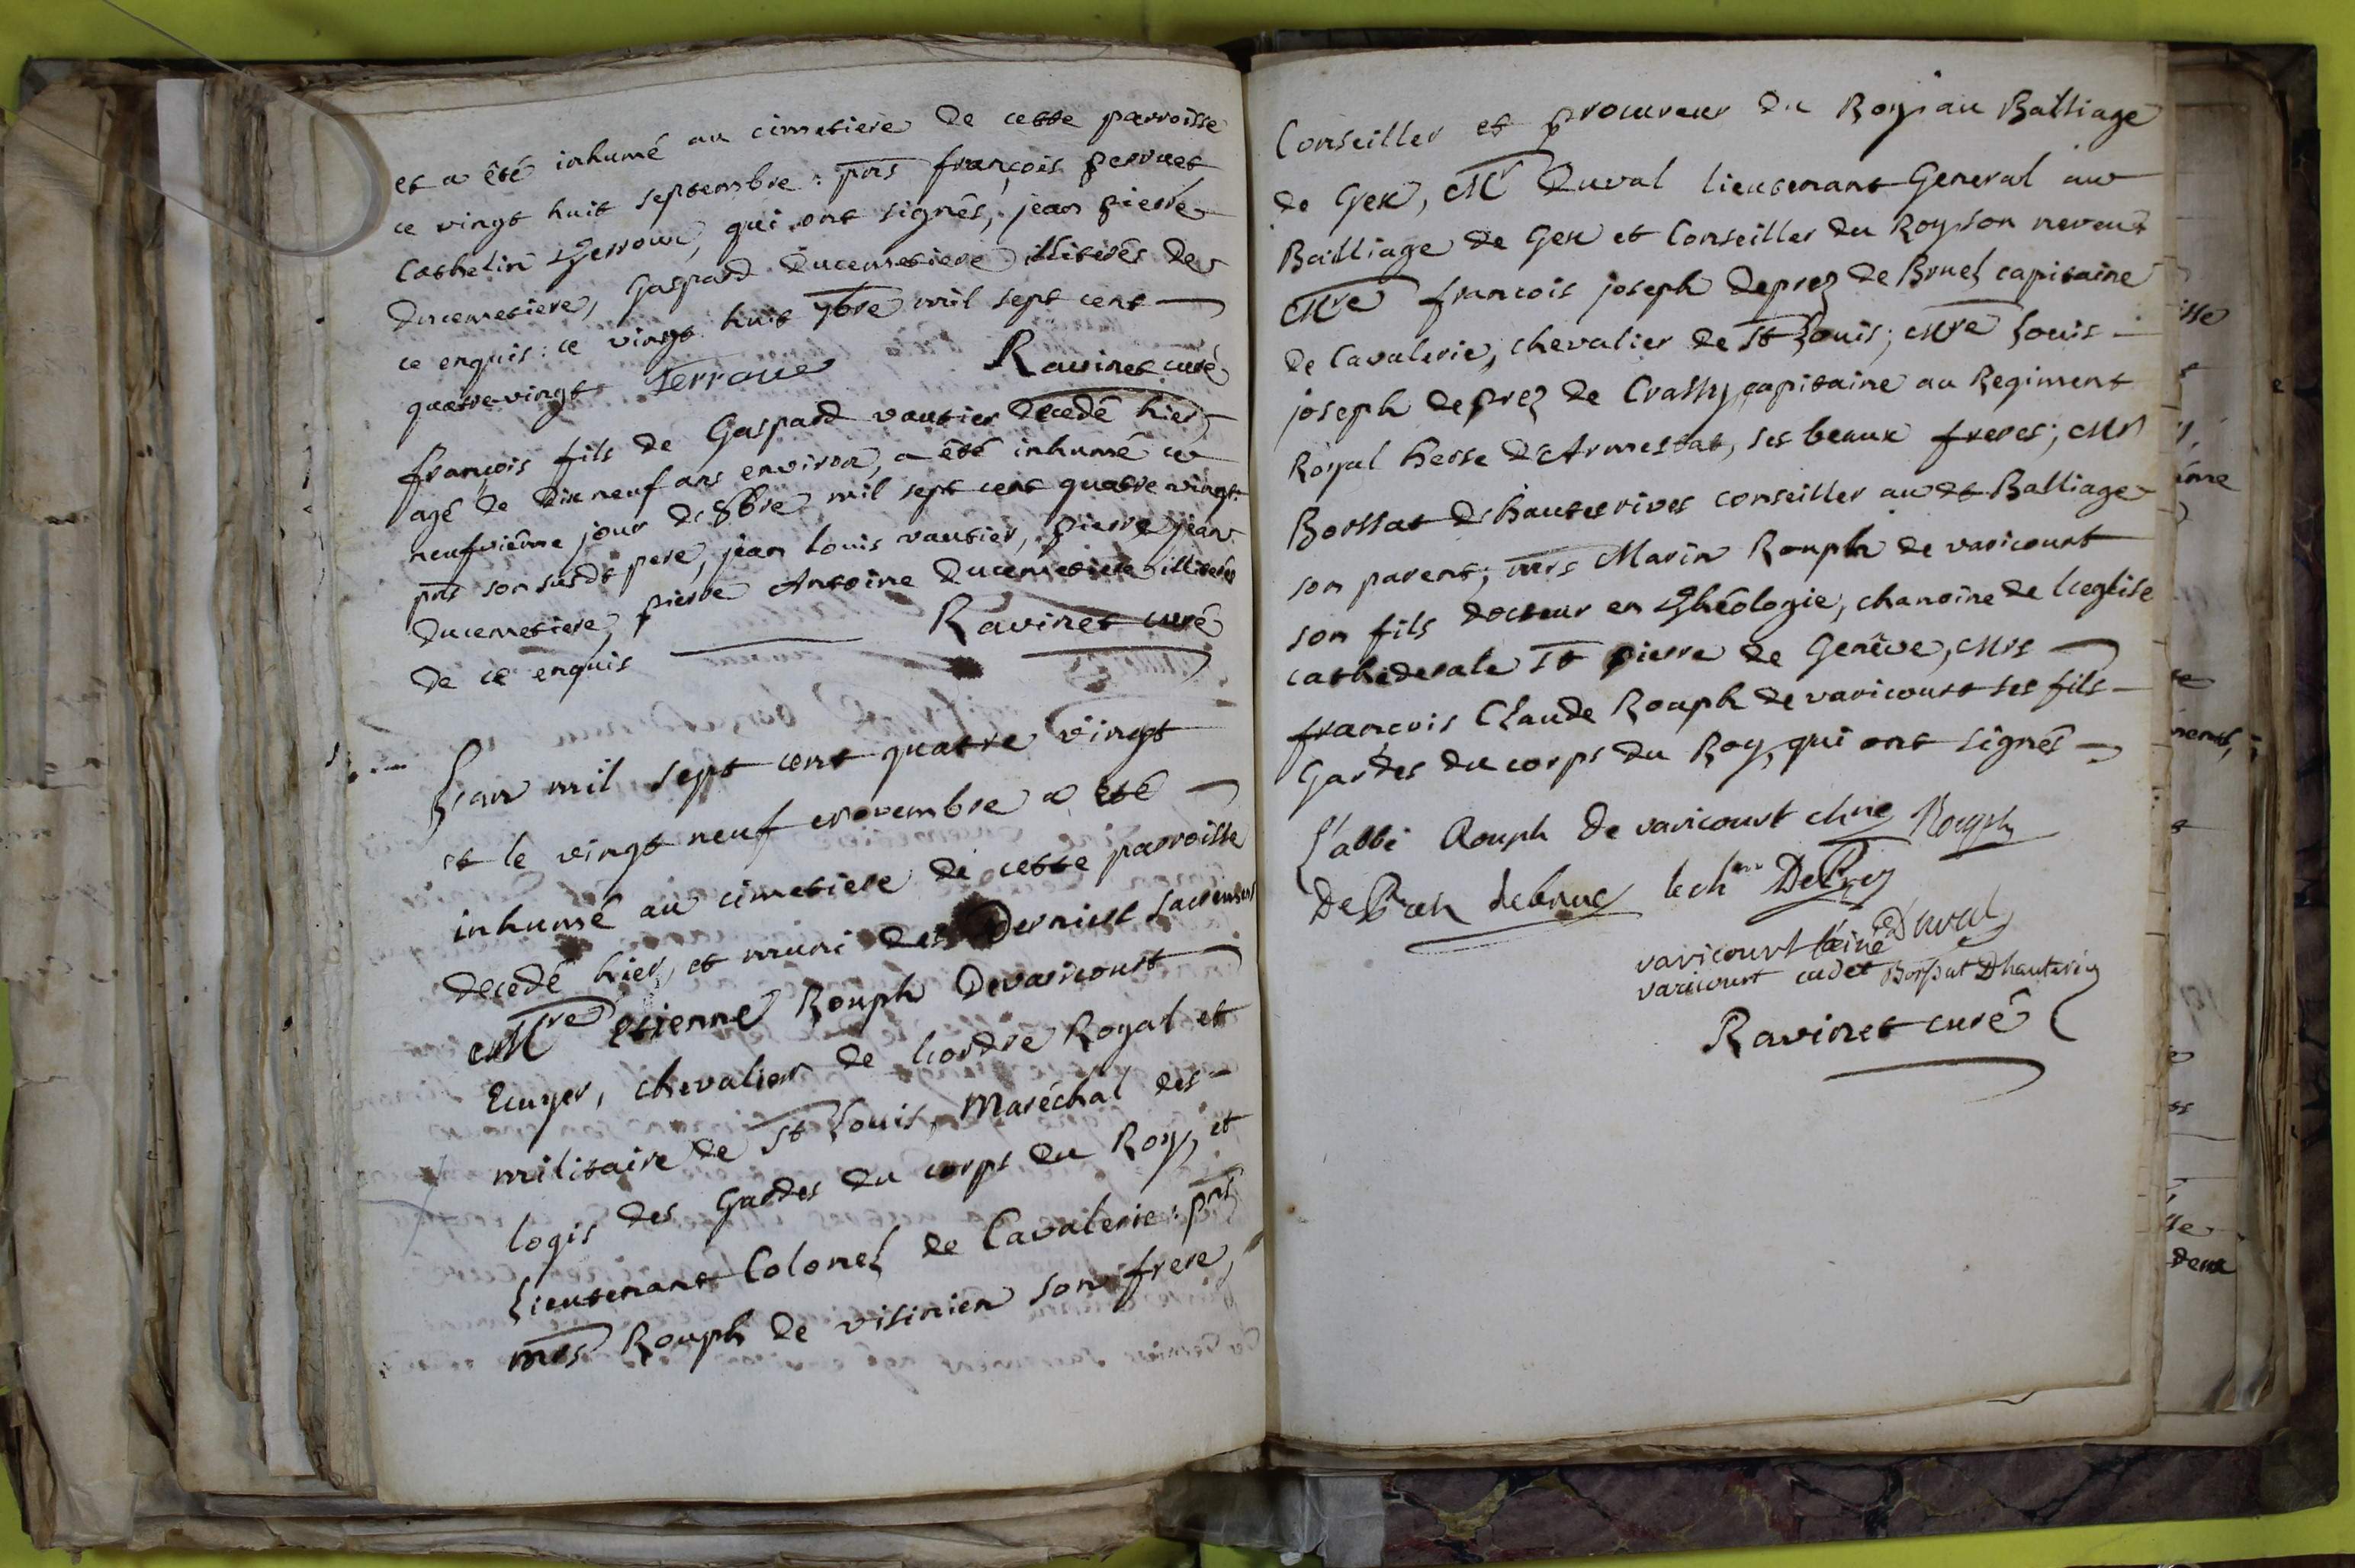 et a été inhumé au cimetiere de cette parroisse
ce vingt huit septembre : pns françois perruet
Cathelin Terroux, qui ont signés, jean pierre
ducemetiere, Gaspard Ducemetiere illiterés de
ce enquis : ce vingt huit 7bre mil sept cent
quatre-vingt Terroux Ravinet curé
françois fils de Gaspard vautier decedé hier
agé de dix neuf ans environ, a été inhumé ce
neufviéme jour de 8bre mil sept cent quatre vingt :
pns son susdt pere, jean louis vautier, pierre jean
Ducemetiere, pierre Antoine Ducemetiere illiterés
de ce enquis Ravinet curé
L'an mil sept cent quatre vingt
et le vingt neuf novembre a été
inhumé au cimetiere de cette parroisse
decedé hier, et muni des Derniers sacremens
Mre etienne Rouph Devaricourt
Ecuyer, chevalier de L'ordre Royal et
militaire de St Louis, Maréchal des
logis des Gardes du corps du Roy, et
Lieutenant Colonel de Cavalerie : pns
mrs Rouph de visinien son frere,
Conseiller et procureur du Roy au Balliage
de Gex, Mr Duval lieutenant General au
Bailliage de Gex et Conseiller du Roy son neveu
Mre francois joseph deprez de Bruel capitaine
de Cavalerie, chevalier de St Louis ; Mre Louis
joseph deprez de Crassy capitaine au Regiment
Royal hesse d'Armestat, ses beaux freres ; Mr
Borssat d'hauterives conseiller audt Balliage
son parent ; mrs Marin Rouph de varicourt
son fils docteur en Théologie, chanoine de L'eglise
cathederale St pierre de Genêve, Mrs
françois Claude Rouph de varicourt ses fils
Gardes du corps du Roy, qui ont signés
L'abbé Rouph de varicourt chne Rouph
debruel le chr DePrez
varicourt lainé Duval
varicourt cadet Borssat Dhauterive
Ravinet curé